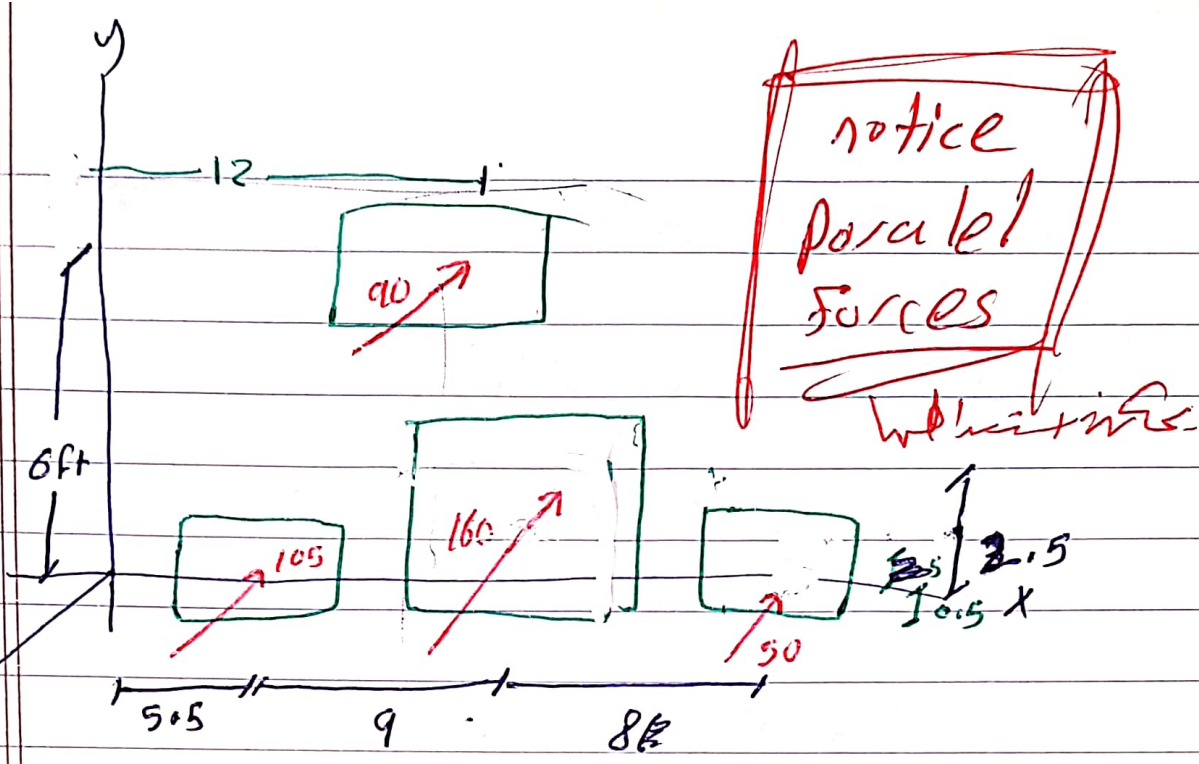 y
12
notice
Paralel
Forces
90
6ft
160
105
2.5
0.5
X
50
5.5
9
8